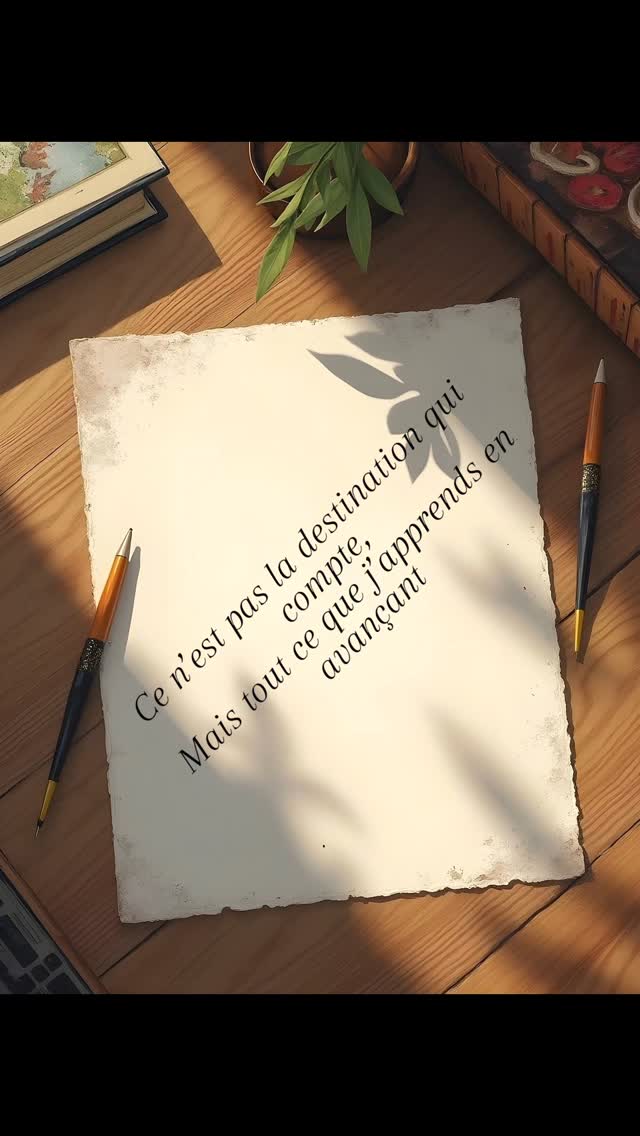 Ce n'est pas la destination qui
compte,
Mais tout ce que j'apprends en
avançant